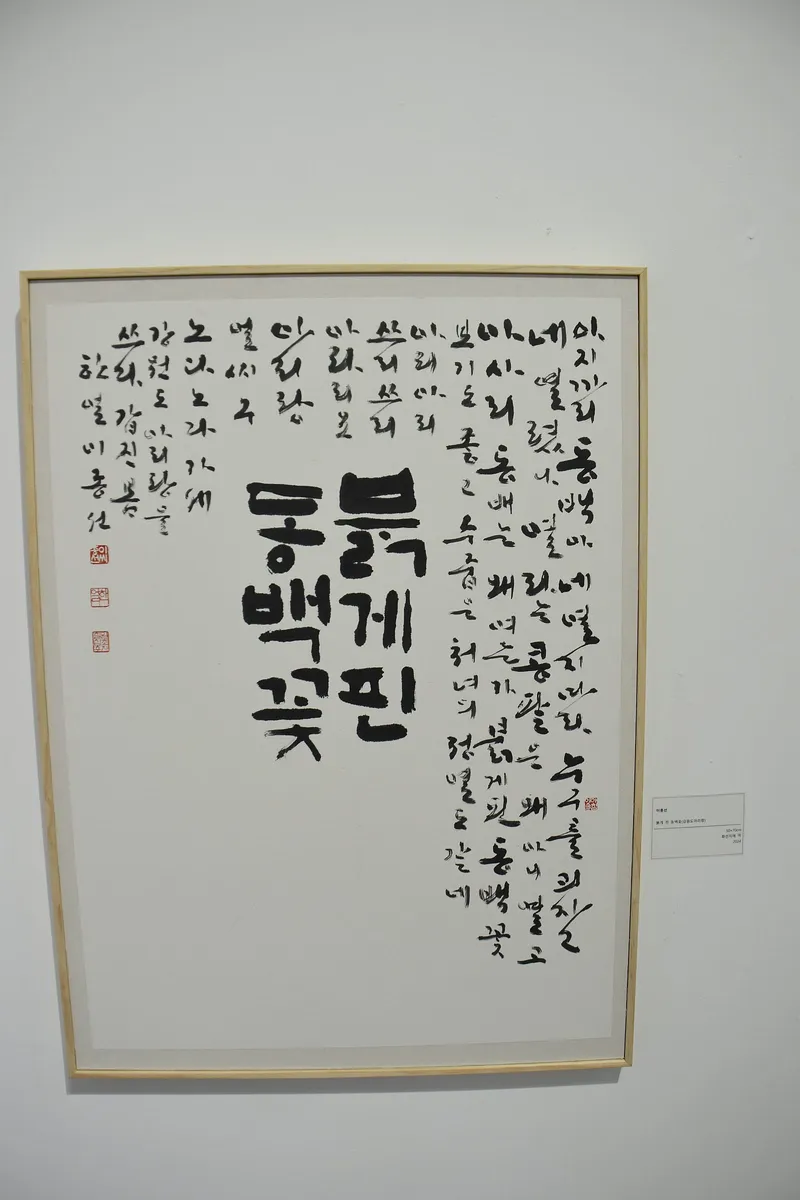 아지까리 동백아 네 열지마라 누구를
네 열렸나 열라는 콩팥은 왜 아니 열고
아사리 동배는 왜 여는가 붉게핀 동백꽃
보기도 좋고 수줍은 처녀의 정열도 같네
아리아리
쓰리쓰리
아라리요
아리랑
얼씨구
노다노다가세
붉게핀
동백꽃
강원도아리랑을
쓰다. 갑진봄
한얼이종선
이종선
붉게 핀 동백꽃(강원도아리랑)
화선지에 먹